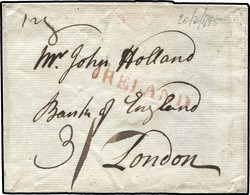 20/2/1795
Mr. John Holland
IRELAND
Bank of England
3/
London